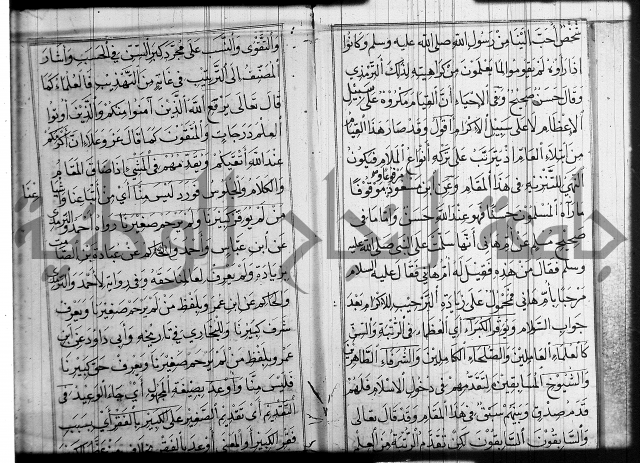 شخص أحب إلينا من رسول الله صلى الله عليه وسلم وكانوا
إذا رأوه لم يقوموا لما يعلمون من كراهيته لذلك الترمذي
وقال حسن صحيح وفي الاحياء أن القيام مكروه على سبيل
الإعظام لا على سبيل الاكرام أقول وقد صار هذا القيام
من ابتلاء العام إذ يترتب على تركه أنواع الملام فيكون
النهي للتنزيه في هذا المقام وعن ابن مسعود مرفوعا وموقوفا
ما رآه المسلمون حسنا فهو عند الله حسن وأما ما في
صحيح مسلم عن أم هانئ أنها سلمت على النبي صلى الله عليه
وسلم فقال من هذه فقيل له أم هانئ فقال عليه السلام
مرحبا بأم هانئ فمحمول على زيادة الترحيب للاكرام بعد
جواب السلام ويوقر الكبراء أي العظماء في الرتبة والسن
كالعلماء العاملين والصلحاء الكاملين والشرفاء الطاهرين
والشيوخ السابقين لتقدمهم في دخول الاسلام فلهم
قدم صدق وبينهم سبق في هذا المقام وقد قال تعالى
والسابقون السابقون لكن تقدم الرتبة من العلم
والتقوى والنسب على مجرد كبر السن في الحسب وأشار
المصنف إلى الترتيب في غاية من التهذيب قالعلماء كما
قال تعالى يرفع الله الذين آمنوا منكم والذين أوتوا
العلم درجات والمتقون كما قال عز وعلا إن أكرمكم
عند الله أتقيكم وتقدمهم في المشي إذا ضاق المقام
والكلام والجلوس فورد ليس منا أي من أتباعنا
من لم يوقر كبيرنا ولم يرحم صغيرنا رواه أحمد والترمذي
عن ابن عباس وأحمد والحاكم عن عبادة بن الصامت
بزيادة ولم يعرف لعالمنا حقه وفي رواية لأحمد والترمذي
والحاكم عن ابن عمر بلفظ من لم يرحم صغيرنا ويعرف
شرف كبيرنا وللبخاري في تاريخه وأبي داود عن ابن
عمرو بلفظ من لم يرحم صغيرنا ويعرف حق كبيرنا
فليس منا وأوعد بصيغة المجهول أي جاء الوعيد في
التقديم أي تقديم الصغير على الكبير بالفقر أي بسبب
جمعة الماجد